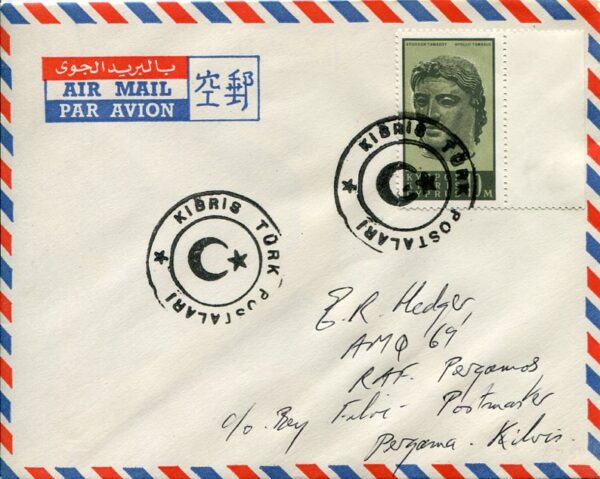 بالبريد الجوى
AIR MAIL
PAR AVION
空郵
ΑΠΟΛΛΩΝ ΤΑΜΑΣΟΥ APOLLO TAMASUS
KIBRIS TÜRK POSTALARI
KIBRIS TÜRK POSTALARI
E.R. Hedger,
AMQ 69
RAF. Pergamos
c/o. Bey Postmaster
Pergama.